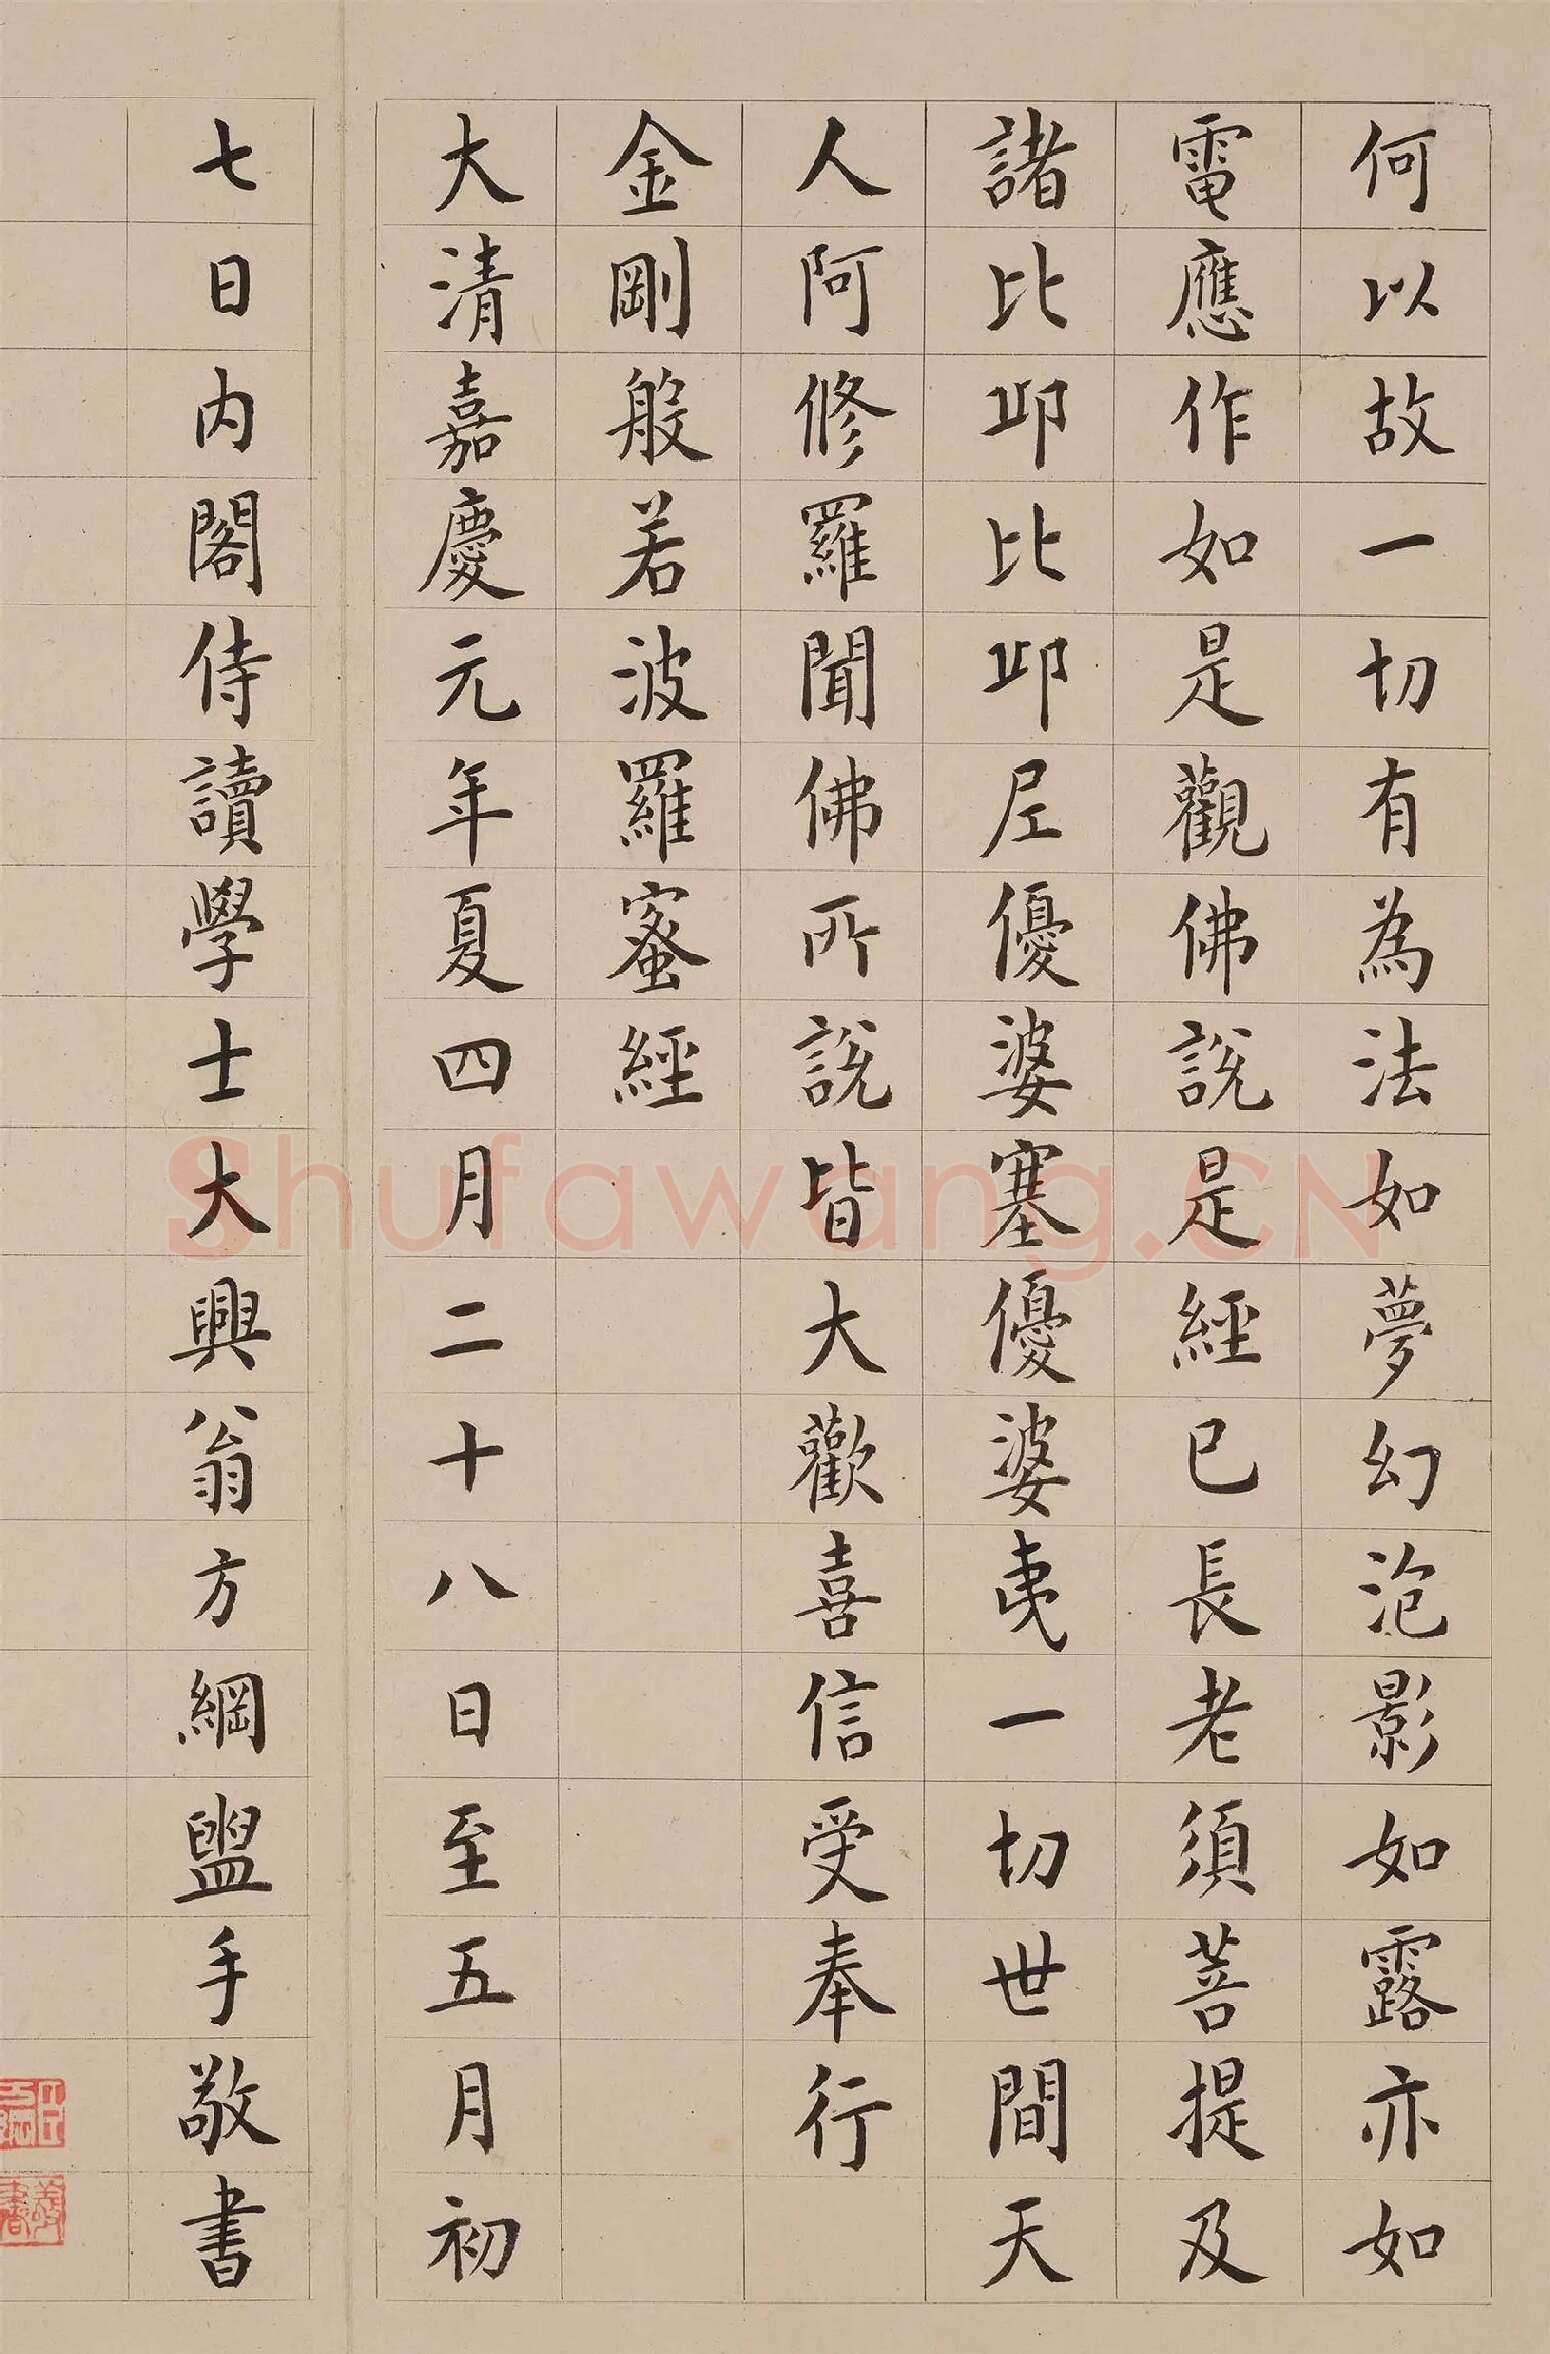 何以故一切有為法如夢幻泡影如露亦如
電應作如是觀佛說是經已長老須菩提及
諸比丘比丘尼優婆塞優婆夷一切世間天
人阿修羅聞佛所說皆大歡喜信受奉行
金剛般若波羅蜜經
大清嘉慶元年夏四月二十八日至五月初
七日內閣侍讀學士大興翁方綱盥手敬書
Shufawang.CN